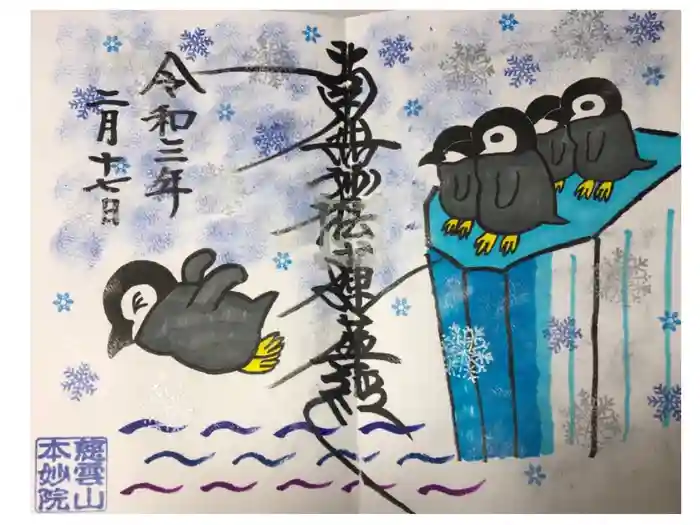 南無妙法蓮華経
令和三年
二月十七日
慈雲山
本妙院